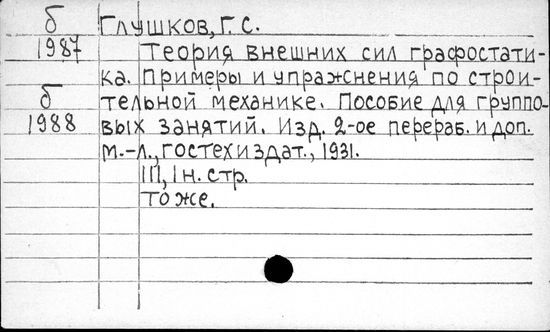 б
1987
Глушков, Г. С.
Теория внешних сил графостати-
ка. Примеры и упражнения по строи-
б
тельной механике. Пособие для группо-
1988
вых занятий. Изд. 2-ое перераб. и доп.
м.-л., гостехиздат., 1931.
111, 1 н. стр.
То же.